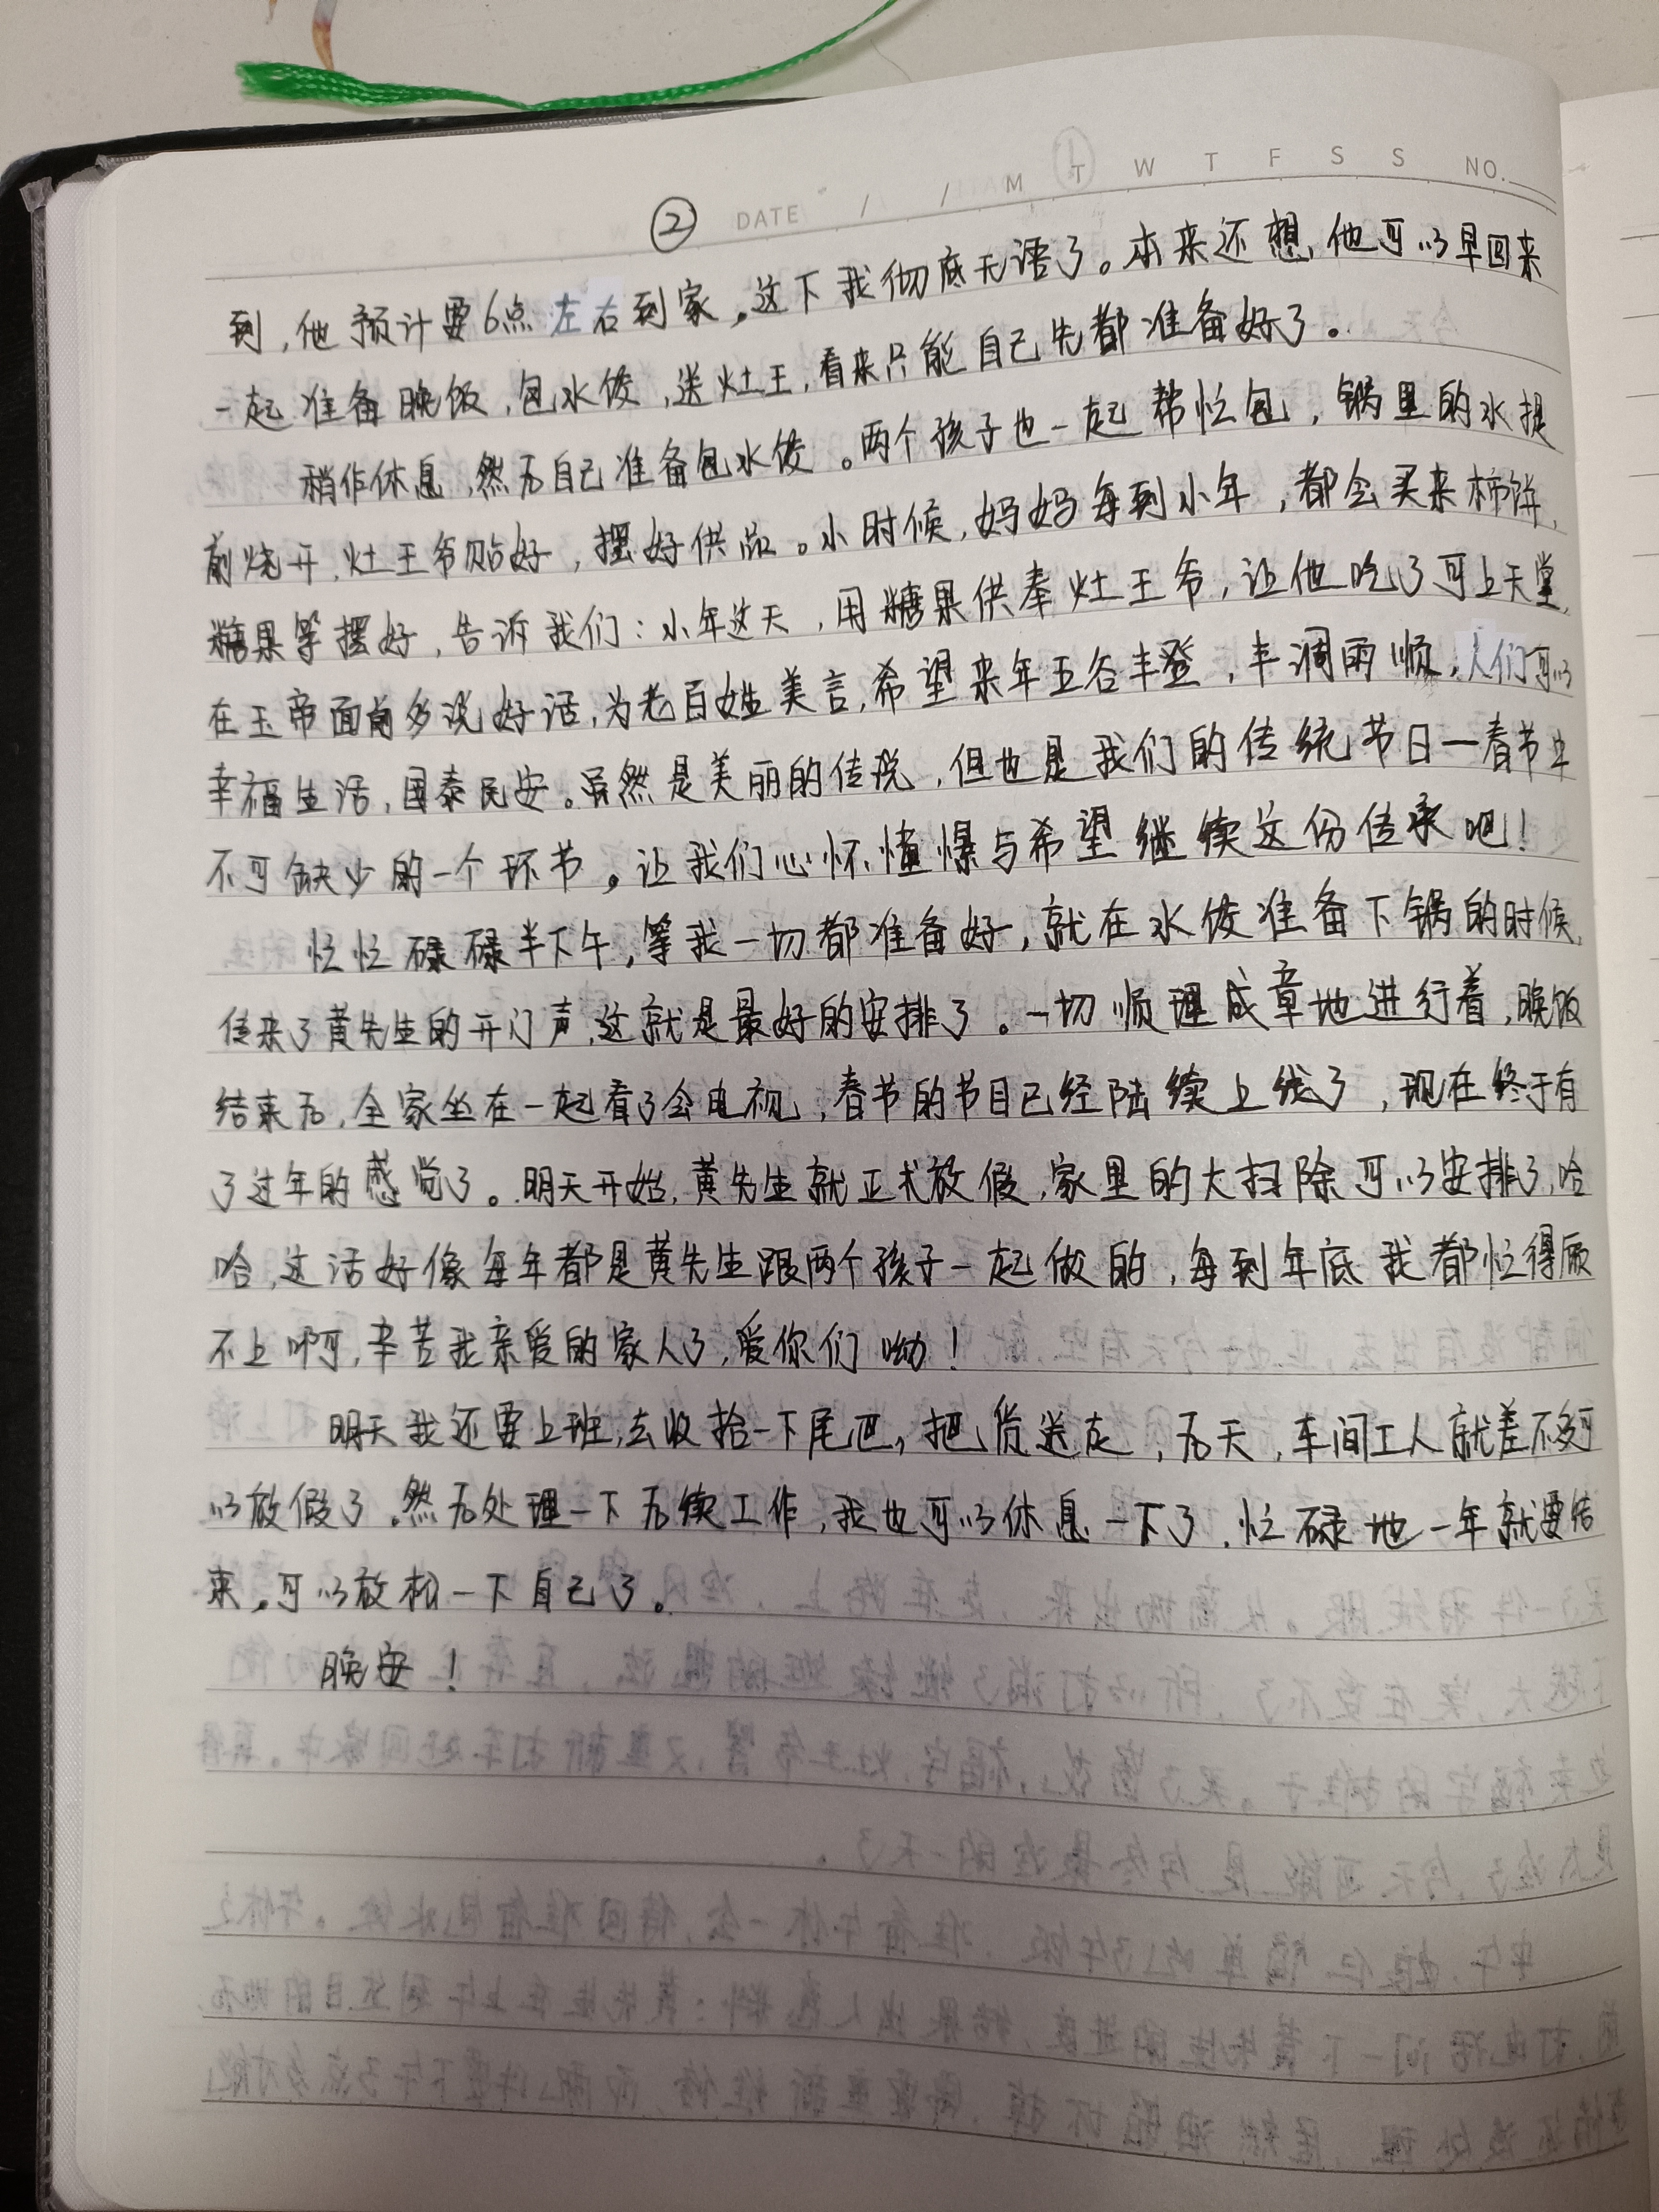 ② DATE / / M T W T F S S NO.
到，他预计要6点左右到家。这下我彻底无语了。本来还想，他可以早回来
一起准备晚饭，包水饺，送灶王，看来只能自己先都准备好了。
稍作休息，然后自己准备包水饺。两个孩子也一起帮忙包，锅里的水提
前烧开，灶王爷贴好，摆好供品。小时候，妈妈每到小年，都会买来柿饼，
糖果等摆好，告诉我们：小年这天，用糖果供奉灶王爷，让他吃了可上天堂，
在玉帝面前多说好话，为老百姓美言，希望来年五谷丰登，丰调雨顺，人们可以
幸福生活，国泰民安。虽然是美丽的传说，但也是我们的传统节日一春节中
不可缺少的一个环节。让我们心怀憧憬与希望继续这份传承吧！
忙忙碌碌半下午，等我一切都准备好，就在水饺准备下锅的时候，
传来了黄先生的开门声，这就是最好的安排了。一切顺理成章地进行着，晚饭
结束后，全家坐在一起看了会电视，春节的节目已经陆续上线了，现在终于有
了过年的感觉了。明天开始，黄先生就正式放假，家里的大扫除可以安排了，哈
哈，这活好像每年都是黄先生跟两个孩子一起做的，每到年底我都忙得顾
不上啊，辛苦我亲爱的家人了，爱你们呦！
明天我还要上班，去收拾一下尾巴，把货送走，后天，车间工人就差不多可
以放假了。然后处理一下后续工作，我也可以休息一下了，忙碌地一年就要结
束。可以放松一下自己了。
晚安！